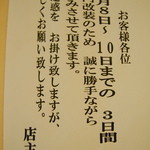 お客様各位
月8日～10日までの 3日間
改装のため 誠に勝手ながら
みさせて頂きます。
惑を お掛け致しますが、
しくお願い致します。
店主